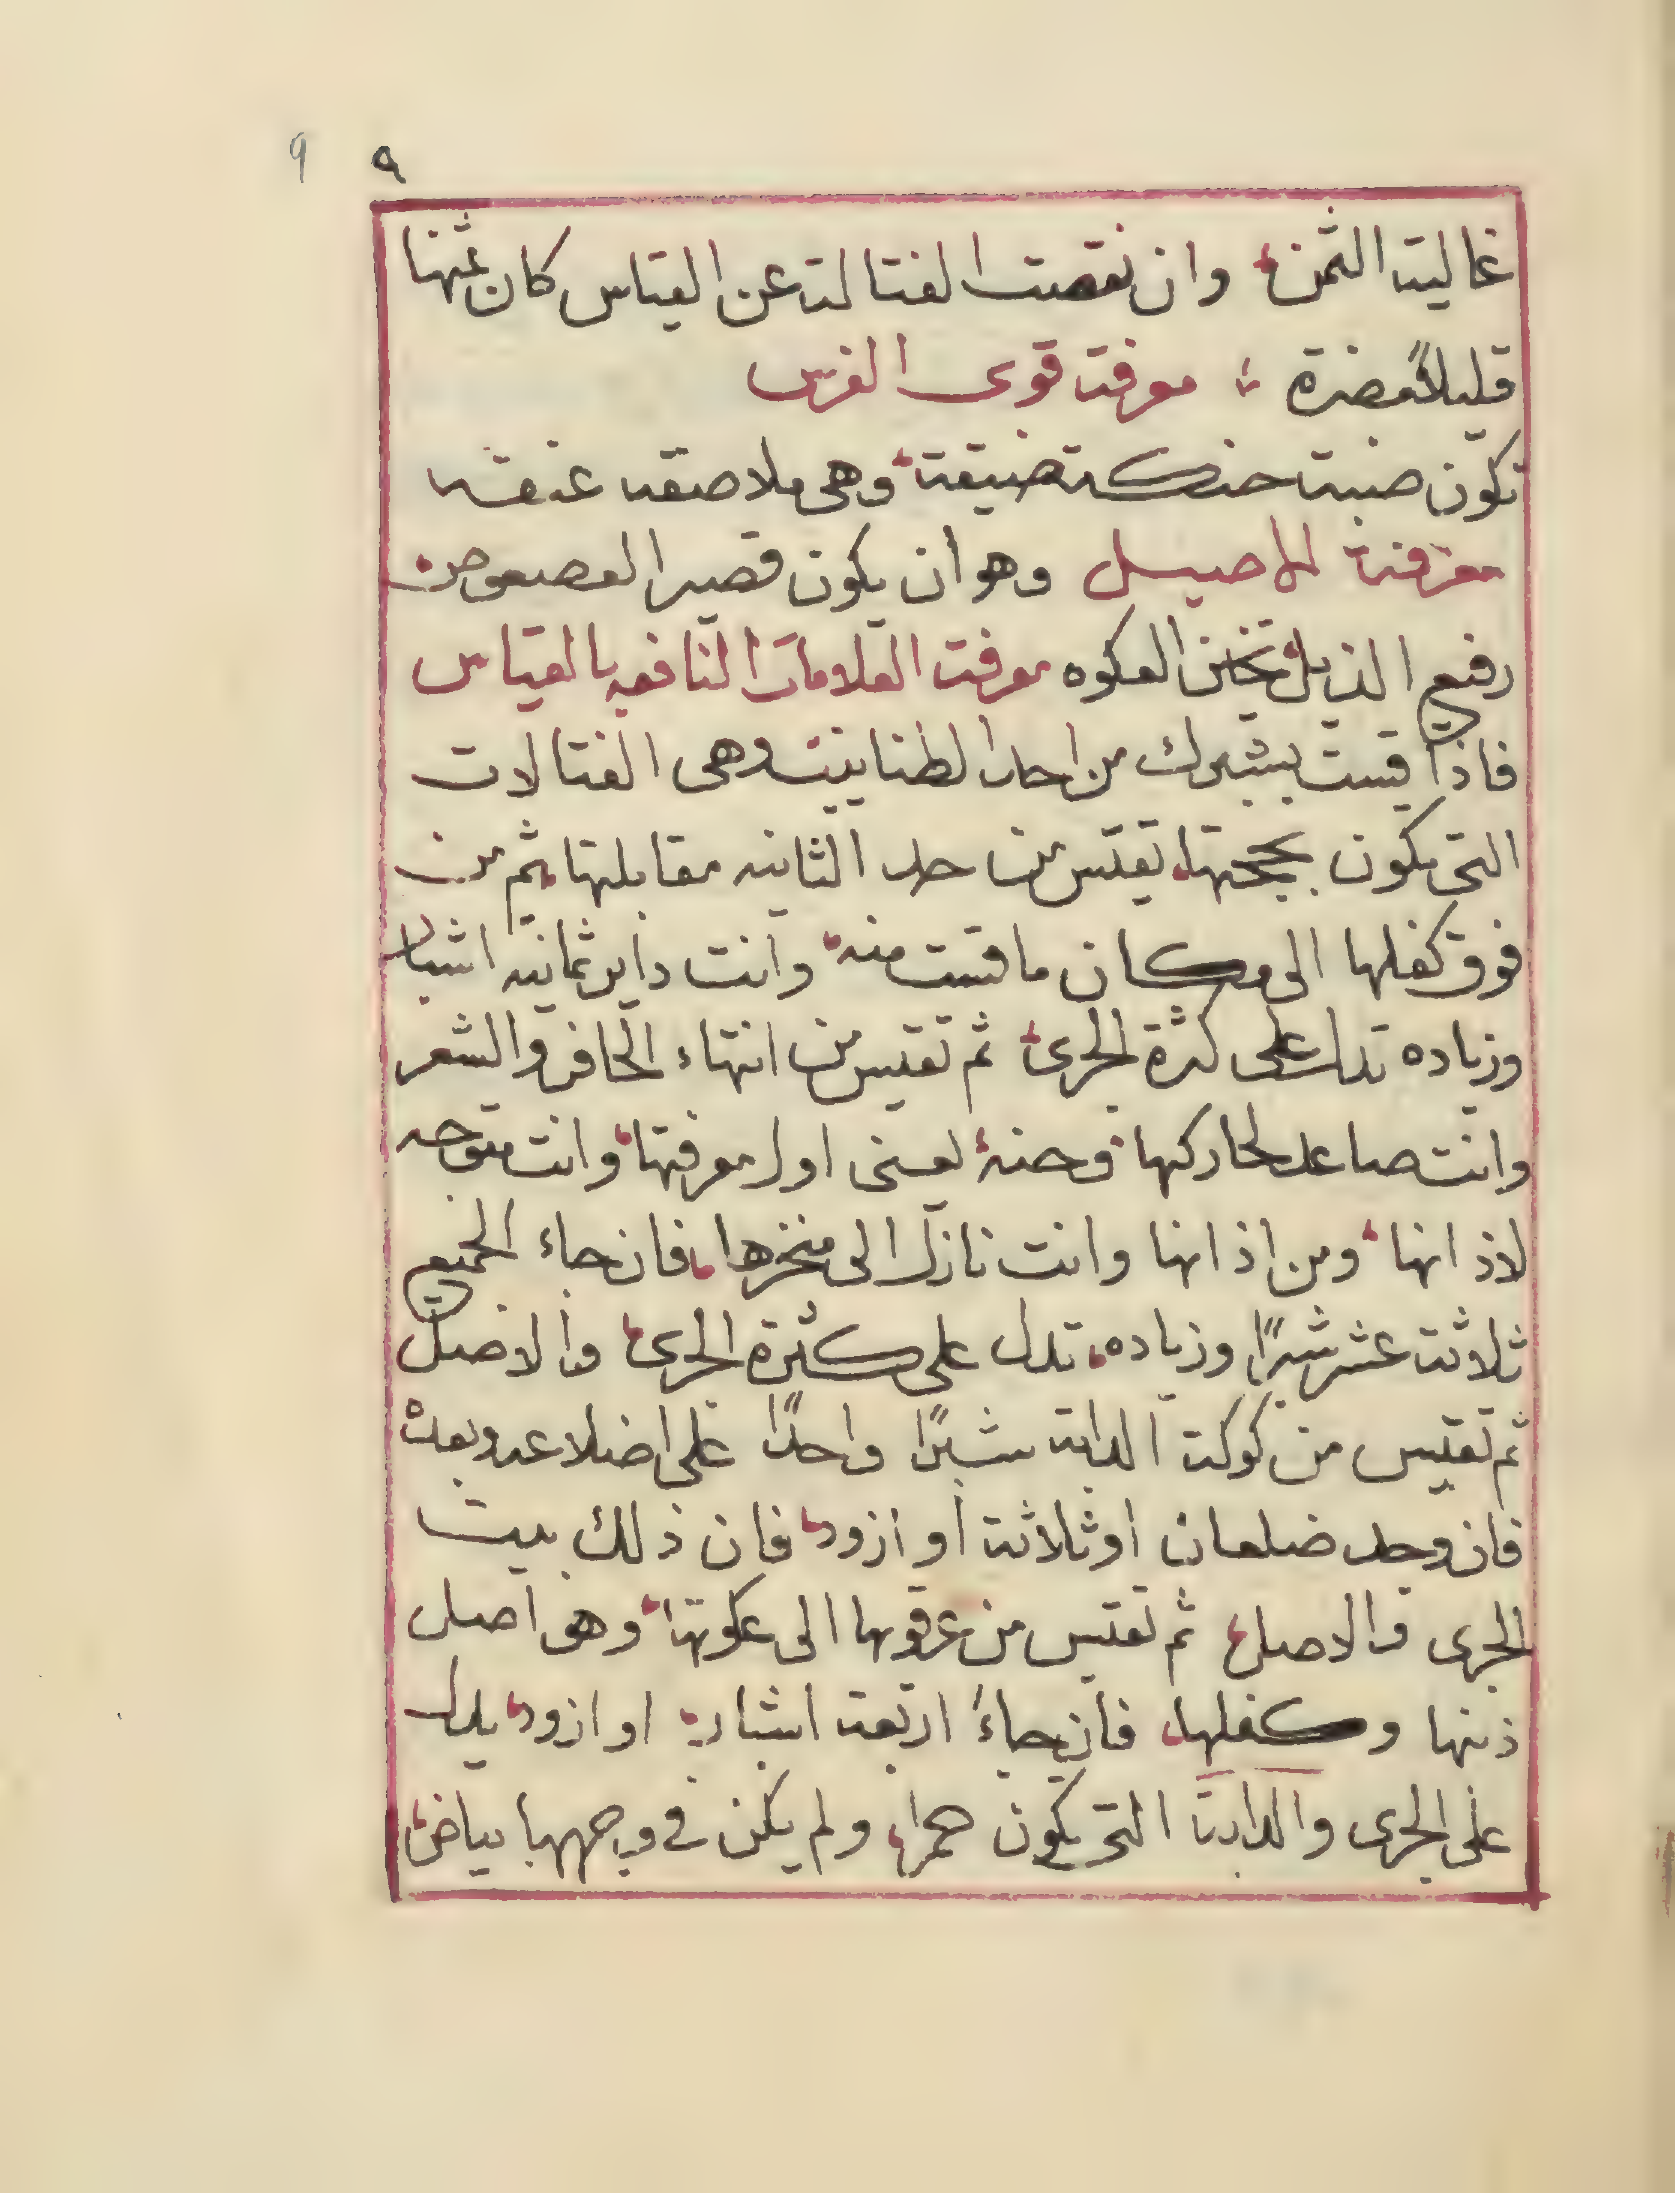 ٩ 9
غالية الثمن وان نقصت الفتالة عن القياس كان ثمنها
قليلاً مضرة معرفة قوى الفرس
تكون صبة حنكة ضيقة وهى ملاصقه عنقه
معرفة الاصيل وهو ان يكون قصير العصعوص
رفيع الذيل تخين العكوه معرفت العلامات النافعه بالقياس
فاذا قيست بشبرك من احد الطنابيت وهى الفتالات
التى يكون بججتها تقيس من حد الثانيه مقابلتها ثم من
فوق كفلها الى مكان ما قيست منه وانت داير ثمانيه اشبار
وزياده تدل على كثرة الجرى ثم تقيس من انتهاء الحافر والشعر
وانت صاعد لحاركها يعنى اول معرفتها وانت متوجه
لاذانها ومن اذانها وانت نازل الى منخرها فان جاء الجميع
ثلاثة عشر شبرًا وزياده تدل على كثرة الجرى والاصل
ثم تقيس من كوكة الدابه شبرًا واحدًا على اضلاعه وبعده
فان وجد ضلعان او ثلاثة او ازود فان ذلك بيت
الجرى والاصل ثم تقيس من عرقوبها الى عكوتها وهو اصل
ذنبها وكفلها فان جاء اربعة اشبار او ازود يدل
على الجرى والدابة التى يكون حمرا ولم يكن فى وجهها بياض